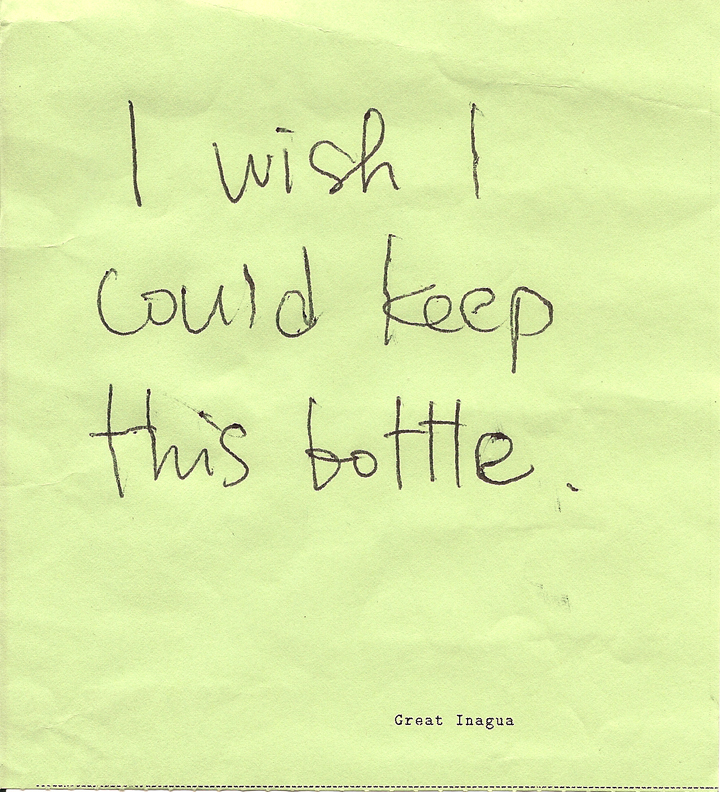 I wish I
could keep
this bottle.
Great Inagua